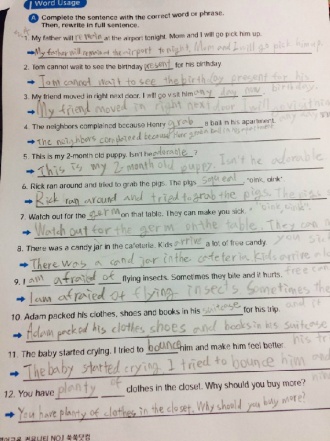 Word Usage
A Complete the sentence with the correct word or phrase.
Then, rewrite in full sentence.
1. My father will remain at the airport tonight. Mom and I will go pick him up.
My father will remain at the airport to night. Mom and I will go pick him up.
2. Tom cannot wait to see the birthday present for his birthday
Tom cannot wait to see the birthday present for his
3. My friend moved in right next door. I will go visit him any day now. birthday.
My friend moved in right next door. I will
4. The neighbors complained because Henry grab a ball in his apartment.
The neighbors complained because
5. This is my 2-month old puppy. Isn't he adorable ?
This is my 2-month old puppy. Isn't he adorable
6. Rick ran around and tried to grab the pigs. The pigs squeal "oink, oink".
Rick ran around and tried to grab the pigs. The pigs
7. Watch out for the germ on that table. They can make you sick. "oink, oink".
Watch out for the germ on the table. They can
8. There was a candy jar in the cafeteria. Kids arrive a lot of free candy. you
There was a cand jar in the cafeteria. Kids arrive a
9. I am afraied of flying insects. Sometimes they bite and it hurts. free can
I am afraied of flying insects. Sometimes the
10. Adam packed his clothes, shoes and books in his suitcase for his trip. and it
Adam packed his clothes shoes and books in his suitcase
11. The baby started crying. I tried to bounce him and make him feel better.
The baby started crying. I tried to bounce him and
12. You have plenty of clothes in the closet. Why should you buy more?
You have plenty of clothes in the closet. Why should you buy more?